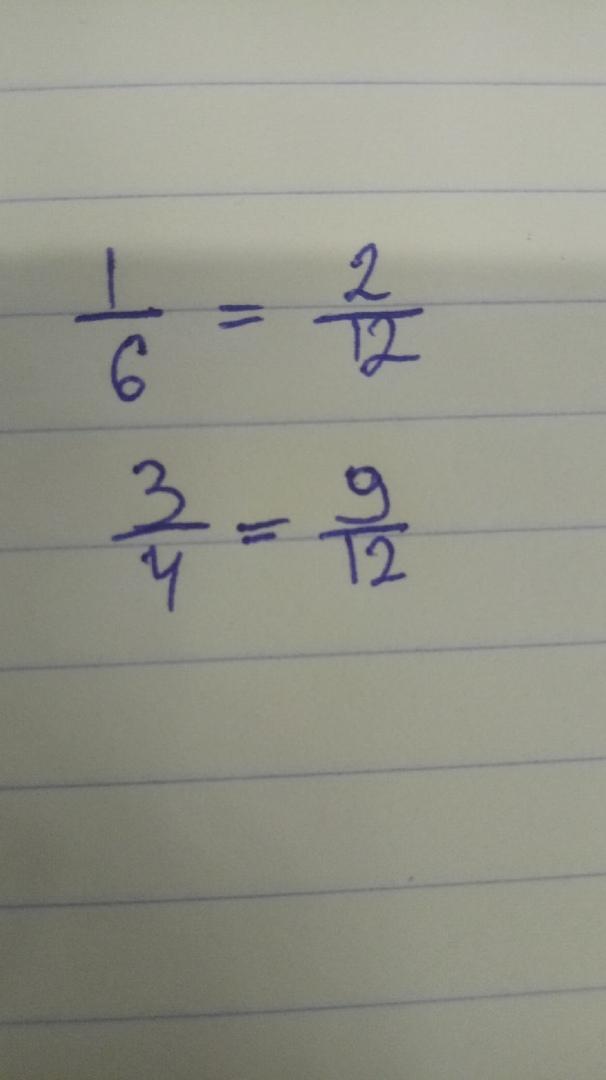 1/6 = 2/12
3/4 = 9/12